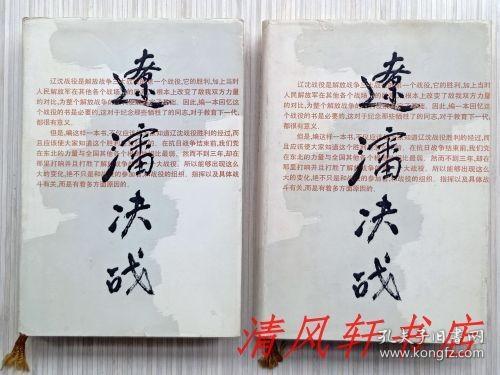 辽沈战役是解放战争三大 第一个战役,它的胜利,加上当时
人民解放军在其他各个战场 根本上改变了敌我双方力量
的对比,为整个解放战争的 因此,编一本回忆这
个战役的书是必要的,这对于纪念那些牺牲了的同志,对于教育下一代,
都很有意义。
但是,编这样一本书,不仅应该 知道辽沈战役胜利的经过,而
且应该使大家知道这个胜利 在抗日战争结束前,我们党
在东北的力量与全国其他各 比最弱。然而不到三年,却在
那里打响并且打胜了解放战争 大战役。所以能够出现这么
大的变化,绝不只是和战役的参加者 战役的组织、指挥以及具体战
斗有关,而是有着多方面原因的。
遼瀋决战
辽沈战役是解放战争三大 第一个战役,它的胜利,加上当时
人民解放军在其他各个战场 根本上改变了敌我双方力量
的对比,为整个解放战争的 因此,编一本回忆这
个战役的书是必要的,这对于纪念那些牺牲了的同志,对于教育下一代,
都很有意义。
但是,编这样一本书,不仅应该 知道辽沈战役胜利的经过,而
且应该使大家知道这个胜利 在抗日战争结束前,我们党
在东北的力量与全国其他各 比最弱。然而不到三年,却在
那里打响并且打胜了解放战争 大战役。所以能够出现这么
大的变化,绝不只是和战役的参加者 战役的组织、指挥以及具体战
斗有关,而是有着多方面原因的。
遼瀋决战
清风轩书店
孔夫子旧书网
www.kongfz.com